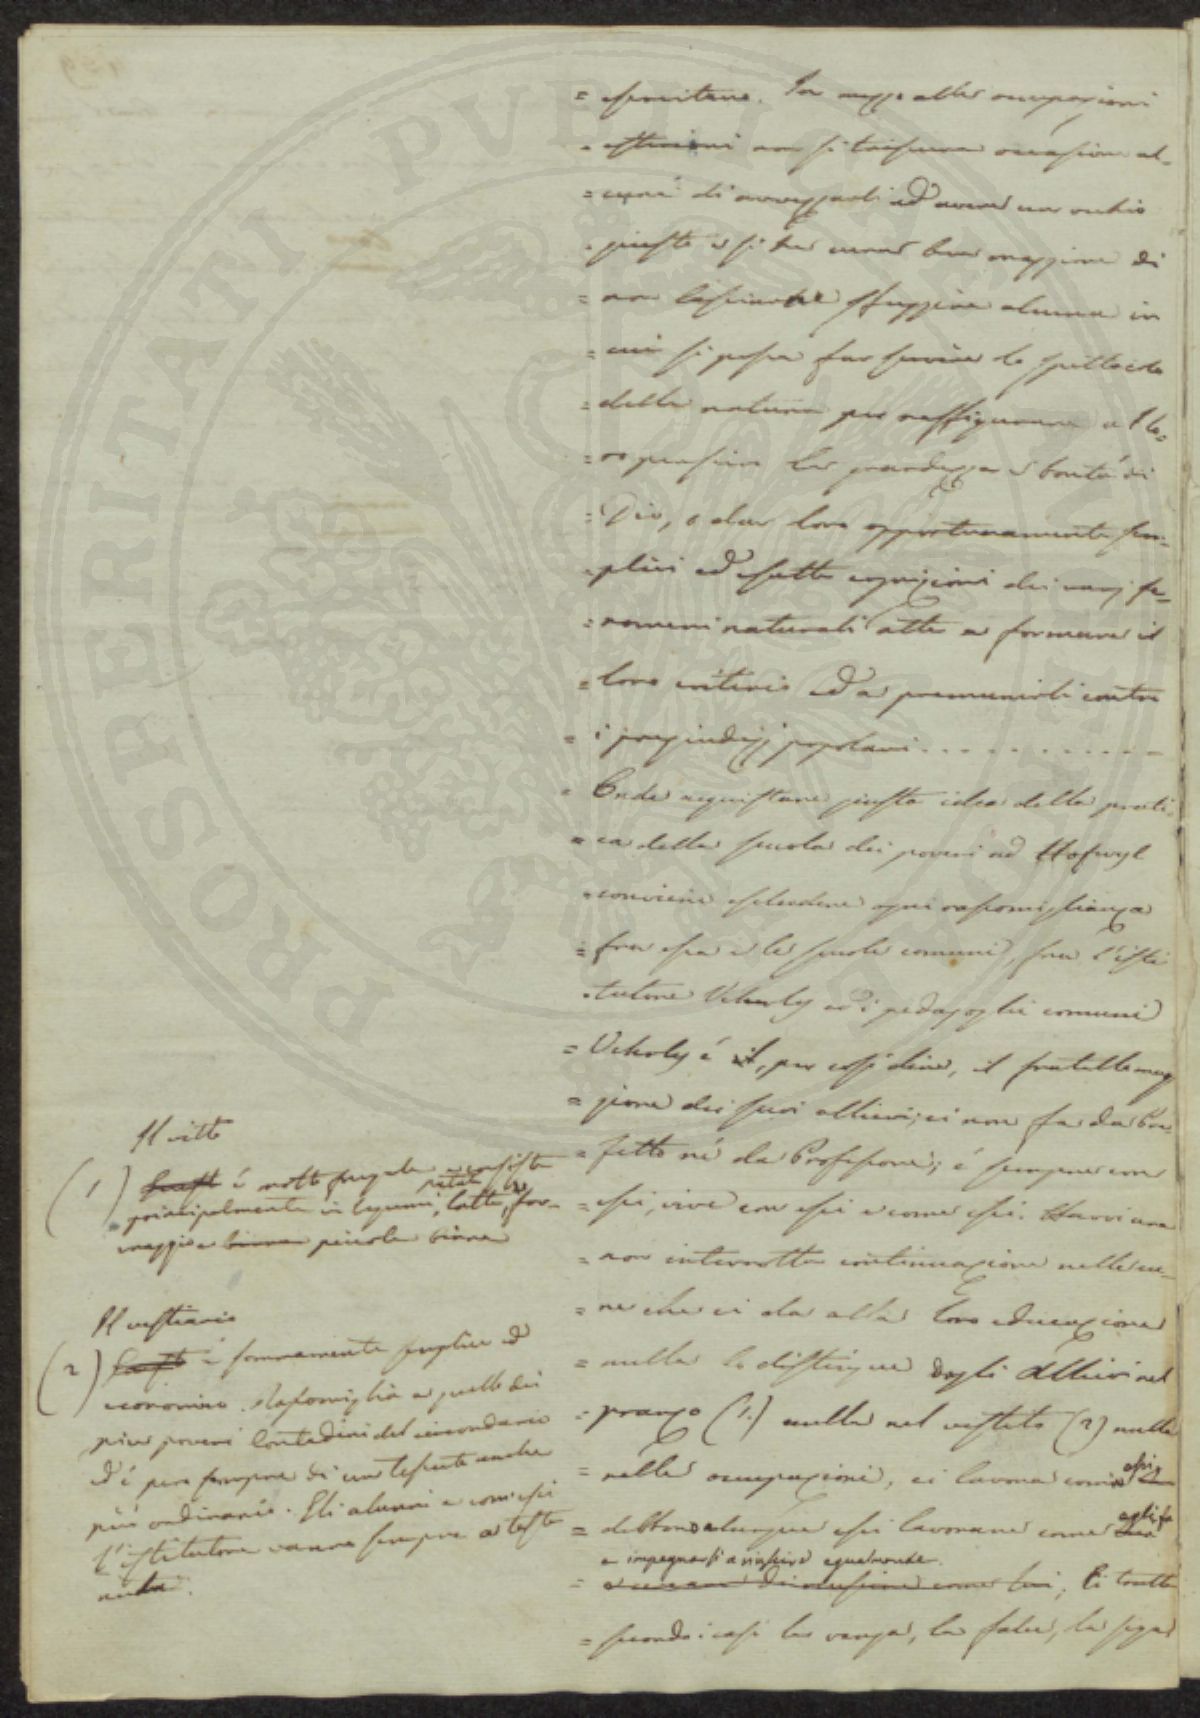 = esercitare. In mezzo alle occupazioni
= esteriori non si trascura occasione al-
= cuna di avvezzarli ad avere un occhio
= giusto e si ha cura ben maggiore di
= non lasciarne sfuggire alcuna in
= cui si possa far servire lo spettacolo
= della natura per raffigurare al lo-
= ro pensiero la grandezza e bontà di
= Dio, o dar loro opportunamente sem-
= plici ed esatte cognizioni dei varj fe-
= nomeni naturali atte a formare il
= loro criterio ed a premunirli contro
= i pregiudizj popolari . . . . . . . . . . . .
= Onde acquistare giusta idea della prati-
= ca della scuola dei poveri ad Hofwyl
= conviene escludere ogni rassomiglianza
= fra essa e le scuole comuni, fra l'isti
= tutore Vehrly ed i pedagoghi comuni
= Vehrly é il, per così dire, il fratello mag
= giore dei suoi allievi; ei non fa da Pre-
= fetto né da Professore; é sempre con
= essi, vive con essi e come essi. Havvi una
= non interrotta continuazione nelle cu-
= re che ei da alla loro educazione
= nulla lo distingue dagli Allievi nel
= pranzo (1.) nulla nel vestito (2) nulla
= nelle occupazioni, ei lavora com'essi
= debbono dunque essi lavorare come egli fa
e impegnarsi a riuscire egualmente.
= come lui; Ei tratta
= secondo i casi la vanga, la falce, la sega
Il vitto
(1) é molto frugale e consiste
principalmente in legumi, patate, latte, for-
maggio e birra piccola birra
Il vestiario
(2) é sommamente semplice ed
economico. Rassomiglia a quello dei
piu poveri Contadini del circondario
ed é pero sempre di un tessuto anche
più ordinario. Gli alunni e com'essi
l'istitutore vanno sempre a testa
nuda.